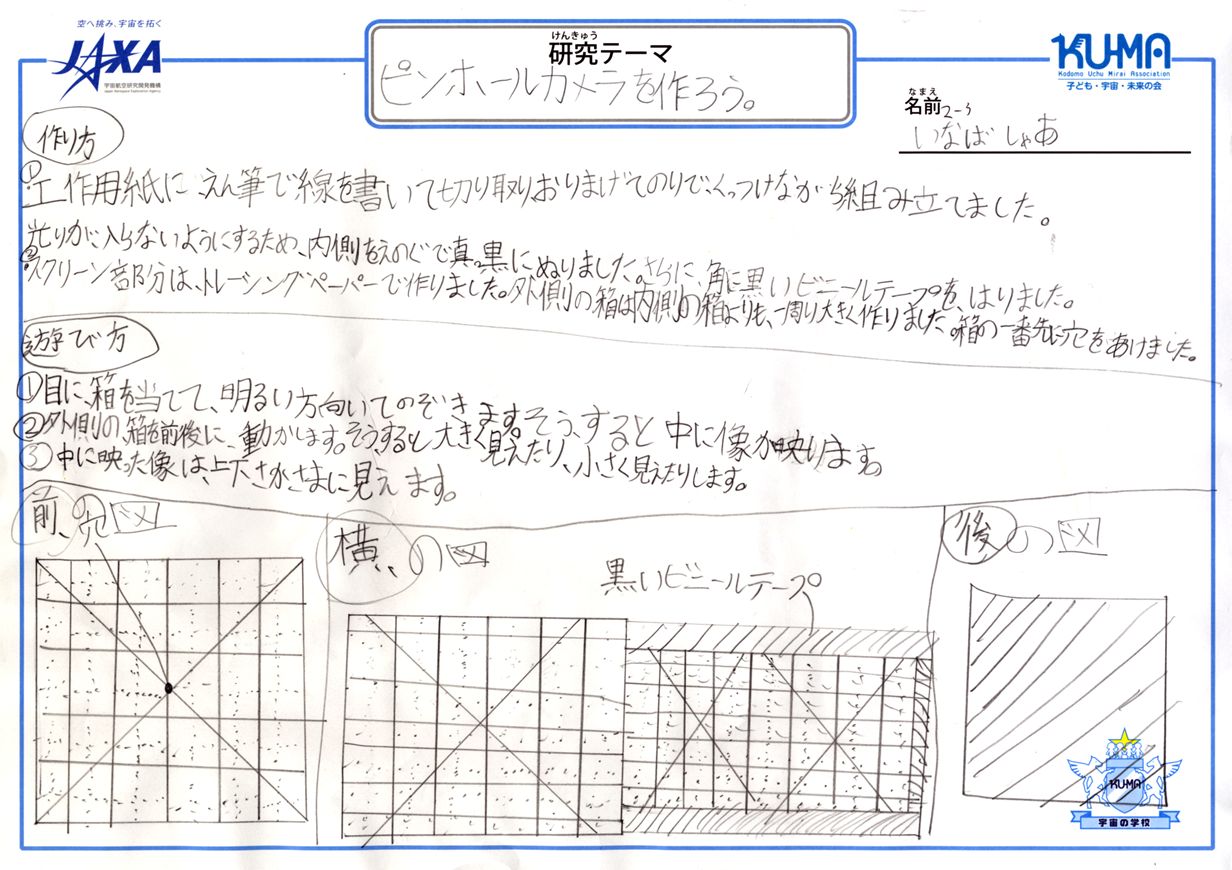 空へ挑み、宇宙を拓く
JAXA
宇宙航空研究開発機構
Japan Aerospace Exploration Agency
けんきゅう
研究テーマ
ピンホールカメラを作ろう。
KU-MA
Kodomo Uchu Mirai Association
子ども・宇宙・未来の会
なまえ
名前 2-3
いなば しゃあ
作り方
①工作用紙に、えん筆で線を書いて切り取りおりまげてのりでくっつけながら組み立てました。
光りが入らないようにするため、内側をえのぐで真っ黒にぬりました。さらに、角に黒いビニールテープを、はりました。
②スクリーン部分は、トレーシングペーパーで作りました。外側の箱は内側の箱よりも、一周り大きく作りました。箱の一番先に穴をあけました。
遊び方
①目に、箱を当てて、明るい方向いてのぞきます。そう、すると中に像が映ります。
②外側の箱を前後に、動かします。そう、すると大きく見えたり、小さく見えたりします。
③中に映った像は、上下さかさまに見えます。
前、の図
穴
横の図
黒いビニールテープ
後の図
KU-MA
宇宙の学校